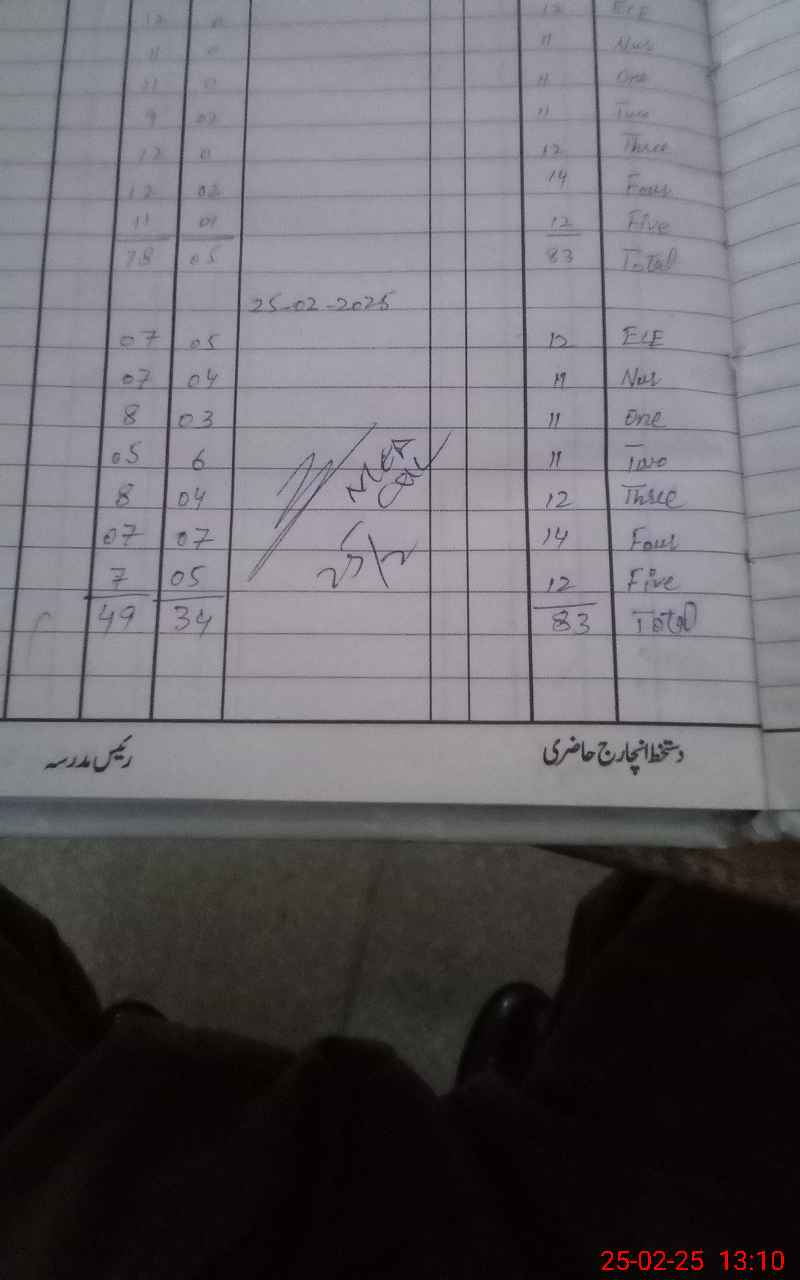 12 0 12 ECE
11 0 11 Nur
11 0 11 One
9 02 11 Two
12 0 12 Three
12 02 14 Four
11 01 12 Five
78 05 83 Total
25-02-2025
07 05 12 ECE
07 04 11 Nur
8 03 11 One
05 6 11 Two
8 04 12 Three
07 07 14 Four
7 05 12 Five
49 34 83 Total
25/2
رئیس مدرسہ دستخط انچارج حاضری
25-02-25 13:10